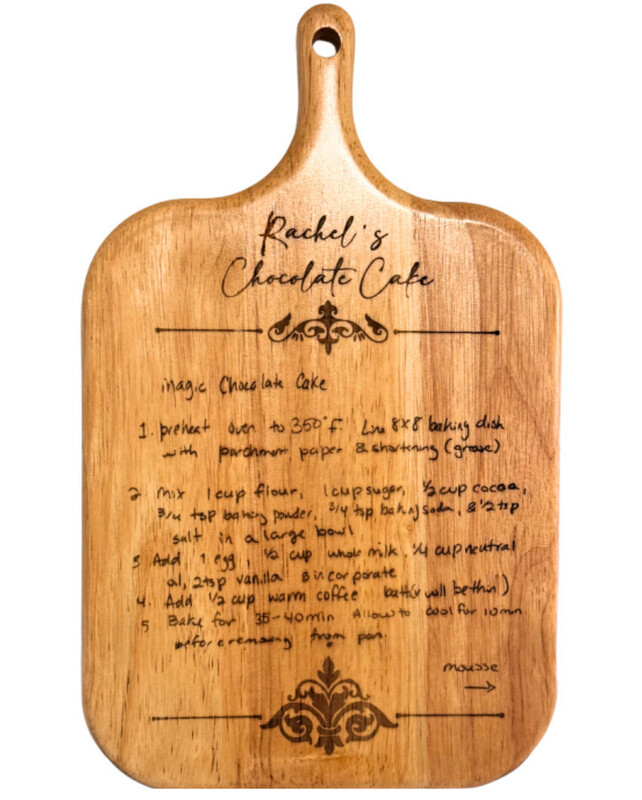 Rachel's
Chocolate Cake
Magic Chocolate Cake
1. preheat oven to 350°F. Line 8x8 baking dish
with parchment paper & shortening (grease)
2. Mix 1 cup flour, 1 cup sugar, 1/2 cup cocoa,
3/4 tsp baking powder, 3/4 tsp baking soda, & 1/2 tsp
salt in a large bowl
3 Add 1 egg, 1/2 cup whole milk, 1/4 cup neutral
oil, 2 tsp vanilla & incorporate
4. Add 1/2 cup warm coffee (batter will be thin)
5 Bake for 35-40 min Allow to cool for 10 min
before removing from pan.
mousse
→